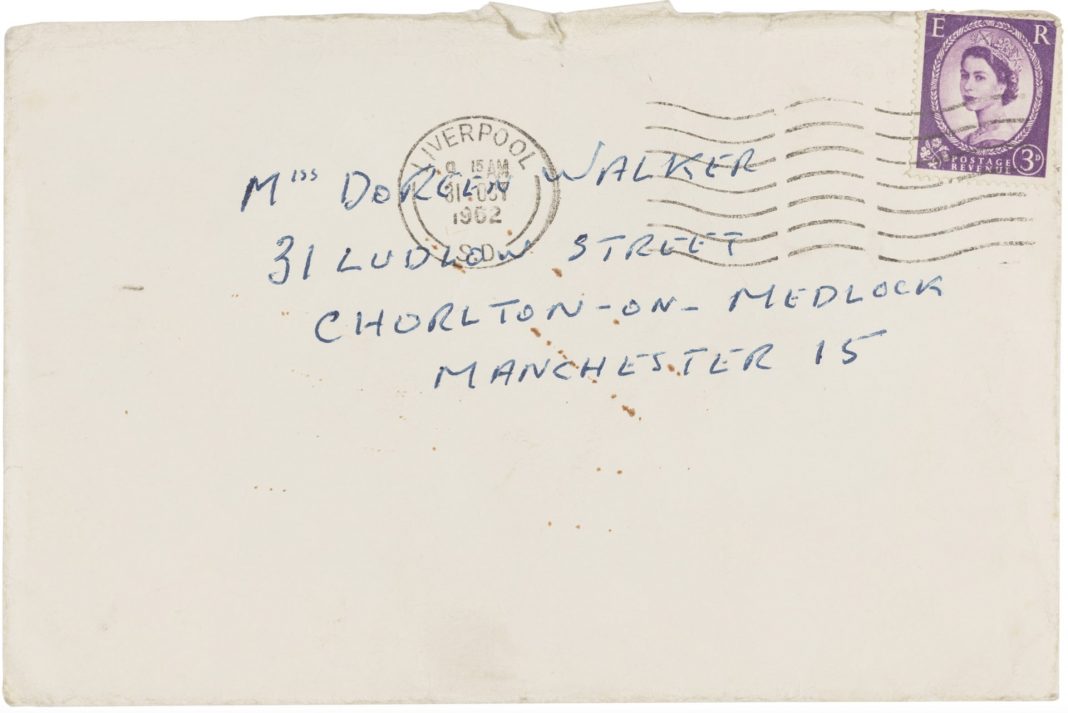 E R
POSTAGE
REVENUE
3D
LIVERPOOL
9 15 AM
31 OCT
1962
Miss DOREEN WALKER
31 LUDLOW STREET
CHORLTON-ON-MEDLOCK
MANCHESTER 15